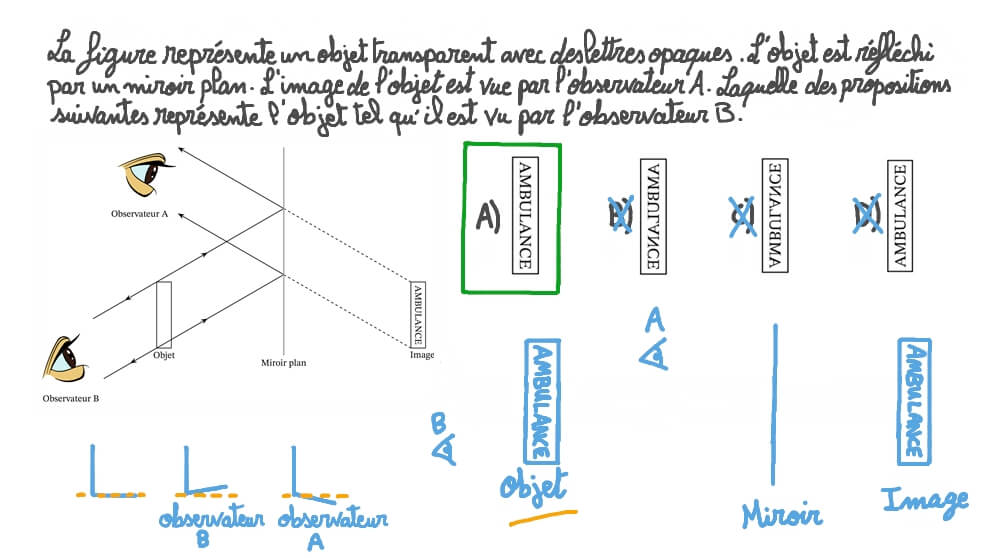 La figure représente un objet transparent avec des lettres opaques. L'objet est réfléchi
par un miroir plan. L'image de l'objet est vue par l'observateur A. Laquelle des propositions
suivantes représente l'objet tel qu'il est vu par l'observateur B.
Observateur A
Objet
Observateur B
Miroir plan
AMBULANCE
Image
A)
AMBULANCE
B)
AMBULANCE
C)
AMBULANCE
D)
AMBULANCE
A
B
AMBULANCE
Objet
Miroir
AMBULANCE
Image
observateur
B
observateur
A